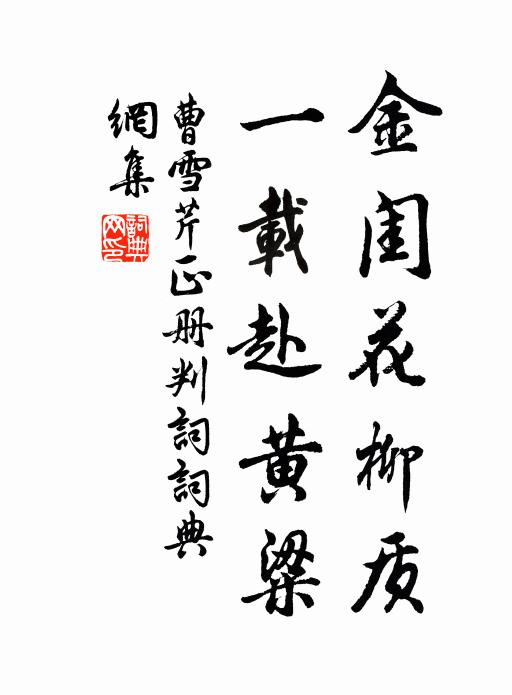 金闺花柳质
一載赴黄粱
曹雪芹正册判詞詞典
網集
詞典網印